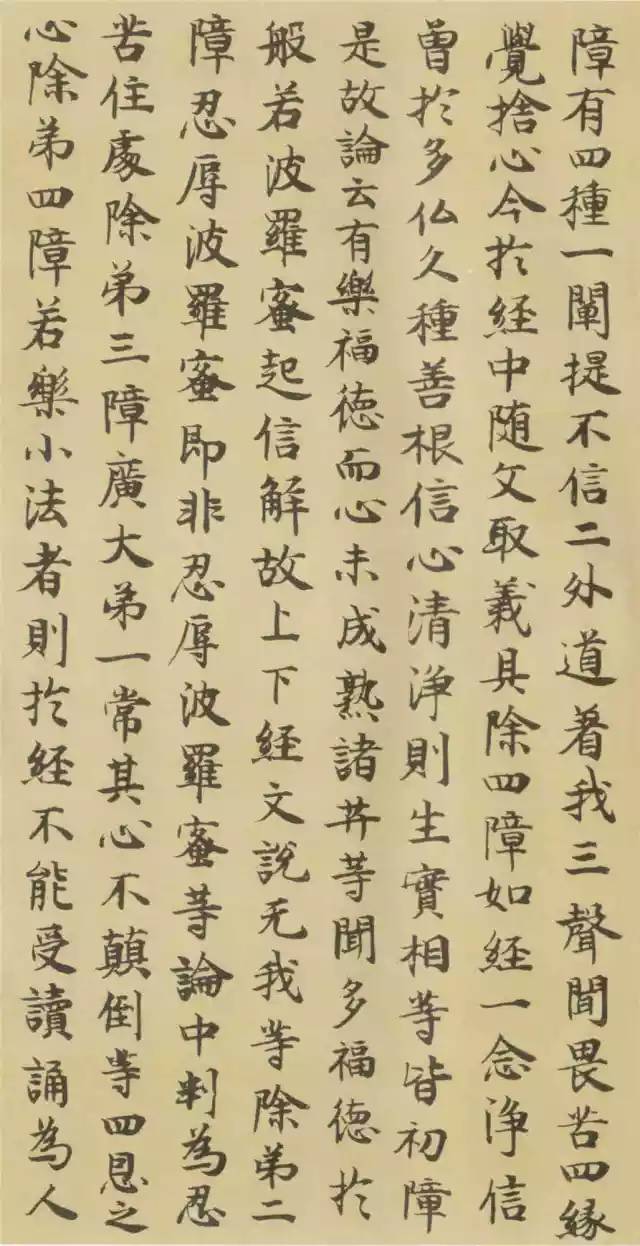 障有四種一闡提不信二外道著我三聲聞畏苦四緣
覺捨心今於経中随文取義具除四障如経一念淨信
曽於多仏久種善根信心清淨則生實相等皆初障
是故論云有樂福徳而心未成熟諸𦬇等聞多福徳於
般若波羅蜜起信解故上下経文說无我等除弟二
障忍辱波羅蜜即非忍辱波羅蜜等論中判為忍
苦住處除弟三障廣大弟一常其心不顛倒等四恩之
心除弟四障若樂小法者則於経不能受讀誦為人